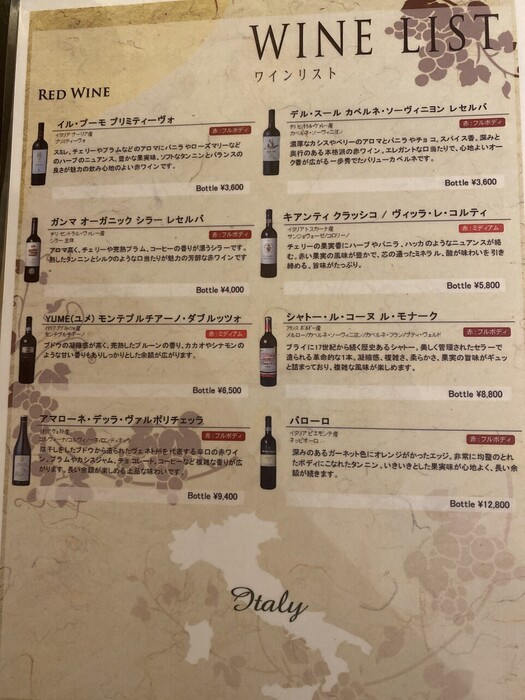 WINE LIST
ワインリスト
RED WINE
イル・プーモ プリミティーヴォ
イタリア プーリア産
プリミティーヴォ
赤：フルボディ
スミレ、チェリーやプラムなどのアロマにバニラやローズマリーなど
のハーブのニュアンス。豊かな果実味、ソフトなタンニンとバランスの
良さが魅力の飲み心地のよい赤ワインです。
Bottle ¥3,600
デル・スール カベルネ・ソーヴィニヨン レセルバ
チリ セントラル・ヴァレー産
カベルネ・ソーヴィニヨン
赤：フルボディ
濃厚なカシスやベリーのアロマとバニラやチョコ、スパイス香。深みと
奥行のある本格派の赤ワイン。エレガントな口当たりで、心地よいオー
ク香が広がる一歩秀でたバリューカベルネです。
Bottle ¥3,600
ガンマ オーガニック シラー レセルバ
チリ セントラル・ヴァレー産
シラー主体
赤：フルボディ
アロマ高く、チェリーや完熟プラム、コーヒーの香りが漂うシラーです。
熟したタンニンとシルクのような口当たりが魅力の芳醇な赤ワインです
Bottle ¥4,000
キアンティ クラッシコ / ヴィッラ・レ・コルティ
イタリア トスカーナ産
サンジョヴェーゼ/コロリーノ
赤：ミディアム
チェリーの果実香にハーブやバニラ、ハッカのようなニュアンスが絡
む。赤い果実の風味が豊かで、芯の通ったミネラル、酸が味わいを引き
締める。旨味がたっぷり。
Bottle ¥5,800
YUME(ユメ) モンテプルチアーノ・ダブルッツォ
イタリア アブルッツォ産
モンテプルチアーノ
赤：ミディアム
ブドウの凝縮感が高く、完熟したプルーンの香り、カカオやシナモンの
ような甘い香りもありしっかりとした余韻が広がります。
Bottle ¥6,500
シャトー・ル・コーヌ ル・モナーク
フランス ボルドー産
メルロー/カベルネ・ソーヴィニヨン/カベルネ・フラン/プティ・ヴェルド
赤：フルボディ
ブライに17世紀から続く歴史あるシャトー。美しく管理されたセラーで
造られる革命的な1本。凝縮感、複雑さ、柔らかさ、果実の旨味がギュッ
と詰まっており、複雑な風味が楽しめます。
Bottle ¥8,800
アマローネ・デッラ・ヴァルポリチェッラ
イタリア ヴェネト産
コルヴィーナ/コルヴィノーネ/ロンディネッラ
赤：フルボディ
陰干しをしたブドウから造られたヴェネト州を代表する辛口の赤ワイ
ン。プラムやカシスジャム、チョコレート、コーヒーなど複雑な香りが広
がります。長い余韻が楽しめる上品な味わいです。
Bottle ¥9,400
バローロ
イタリア ピエモンテ産
ネッビオーロ
赤：フルボディ
深みのあるガーネット色にオレンジがかったエッジ。非常に均整のとれ
たボディにこなれたタンニン、いきいきとした果実味が心地よく、長い余
韻が続きます。
Bottle ¥12,800
Italy